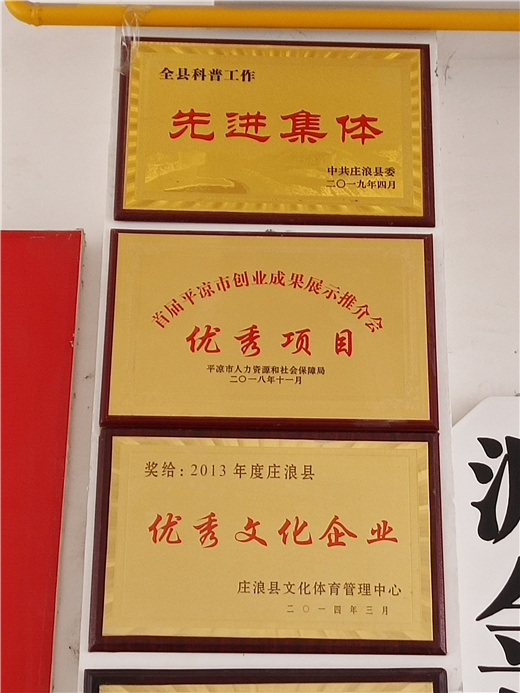 全县科普工作
先进集体
中共庄浪县委
二〇一九年四月
首届平凉市创业成果展示推介会
优秀项目
平凉市人力资源和社会保障局
二〇一八年十一月
奖给：2013年度庄浪县
优秀文化企业
庄浪县文化体育管理中心
二〇一四年三月